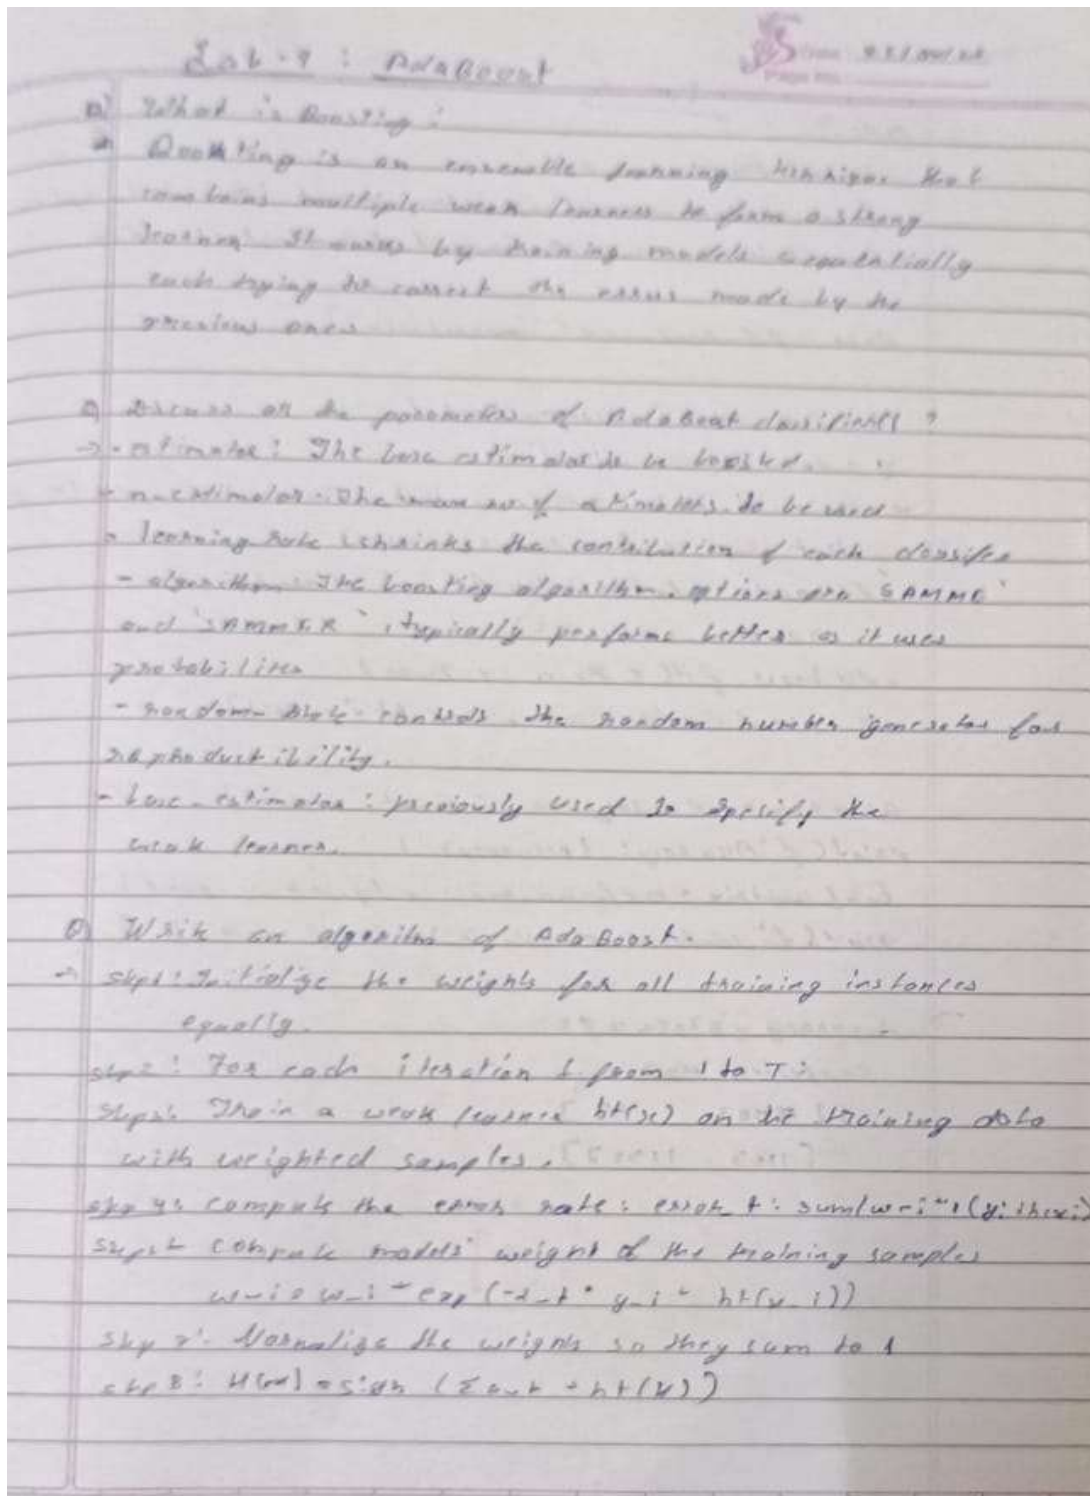 Lab-9 : AdaBoost
Date
Page No.
Q) What is Boosting :
Boosting is an ensemble learning that
combains multiple weak learners to form a strong
learner. It works by training models sequentially
each trying to correct the errors made by the
previous ones
Q) Discuss all the parameters of AdaBoost classifiers ?
→ - estimator : The base estimator to be boosted.
- n-estimator - The max no of estimators to be used
- learning rate : shrinks the contribution of each classifer
- algorithm : The boosting algorithm. options are 'SAMME'
and 'SAMME.R' , typically performs better as it uses
probabilities
- random-state - controls the random number generator for
reproductibility.
- base-estimator : previously used to specify the
weak learner.
Q) Write an algorithm of AdaBoost.
→ step1 : Initialize the weights for all training instances
equally.
step2 : For each iteration t from 1 to T :
step3: Train a weak learner ht(x) on the training data
with weighted samples.
step 4: compute the error rate : error_t : sum(w-i
step5 compute models' weight of the training samples
w-i = w-i * exp (-α_t * y_i * ht(x_i))
step 7: Normalize the weights so they sum to 1
step 8 : H(x) = sign (